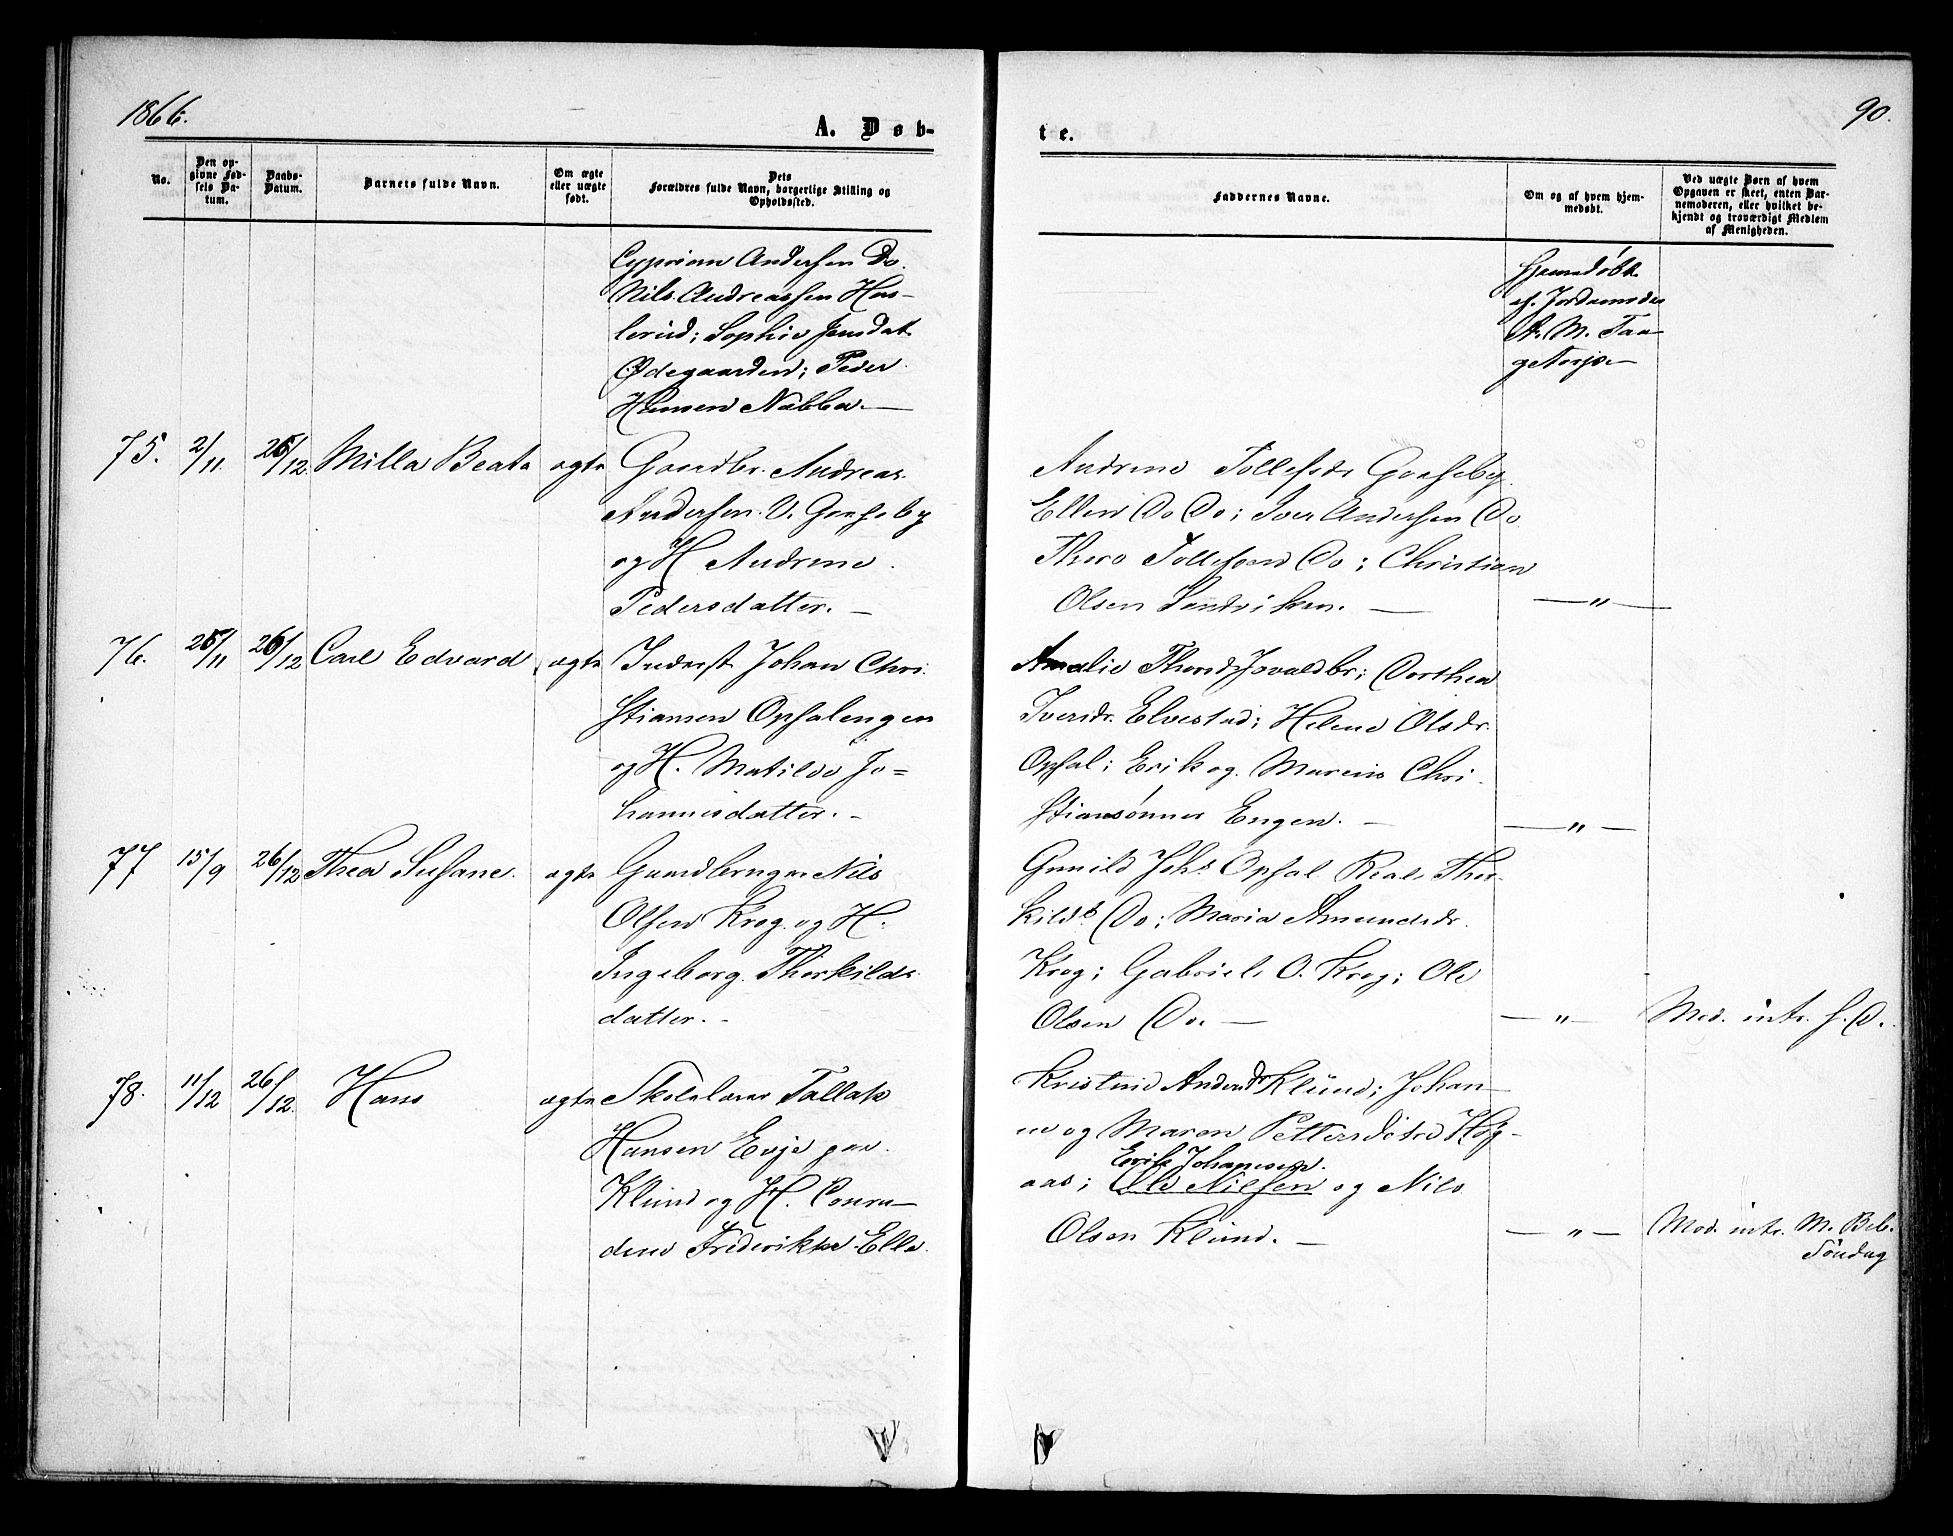 1866.
90.
A. Døb-
te.
No.
Den op-
givne Fød-
sels Da-
tum.
Daabs-
Datum.
Barnets fulde Navn.
Om ægte
eller uægte
født.
Dets
Forældres fulde Navn, borgerlige Stilling og
Opholdssted.
Faddernes Navne.
Om og af hvem hjem-
medøbt.
Ved uægte Børn af hvem
Opgaven er skeet, enten Bar-
nemoderen, eller hvilket be-
kjendt og troværdigt Medlem
af Menigheden.
Cyprian Andersen Do.
Nils Andreassen Has-
lerud; Sophie Jensdat
Ødegaarden; Peder
Hansen Nabba.—
Hjemdøbt
af Jordemoder
A. M. Taa-
75. 2/11. 26/12. Milla Beata ægte Gaardbr. Andreas
Andersen V. Gaaseby
og H Andrine
Pedersdatter. —
Andrine Tollefsdr Gaaseby
Ellen Do Do; Iver Andersen Do
Thero Tollefsen Do; Christian
Olsen —
— " —
76. 26/11 26/12 Carl Edvard ægte Inderst Johan Chri-
stiansen Opsalengen
og H. Matilde Jo=
hannisdatter. -
Amalie Dorthea
Iversdr. Elvestad; Helene Olsdr.
Opsal; Erik og Marius Chri-
stiansønner Engen. —
— " —
77 15/9 26/12 Thea Susane. ægte Gaardbruger Nils
Olsen Krog og H.
Ingeborg Thorkilds-
datter. -
Gunild Johs Opsal Thor-
kilds Do; Maria Amundsdr.
Krog; Gabriel O. Krog; Ole
Olsen Do. —
— " — Med. intr. s. D.
78. 11/12 26/12. Hans ægte Skolelærer Tallak
Hansen Evje paa
Klund og H. Conra-
dine Frederikke Elle.
Kristine Andersdr Klund; Johan-
ne og Maren Pettersdøtre Høg-
Erik Johanesen.
aas; Ole Nilsen og Nils
Olsen Klund. —
— " — Mod. intr. M. Beb.
Søndag